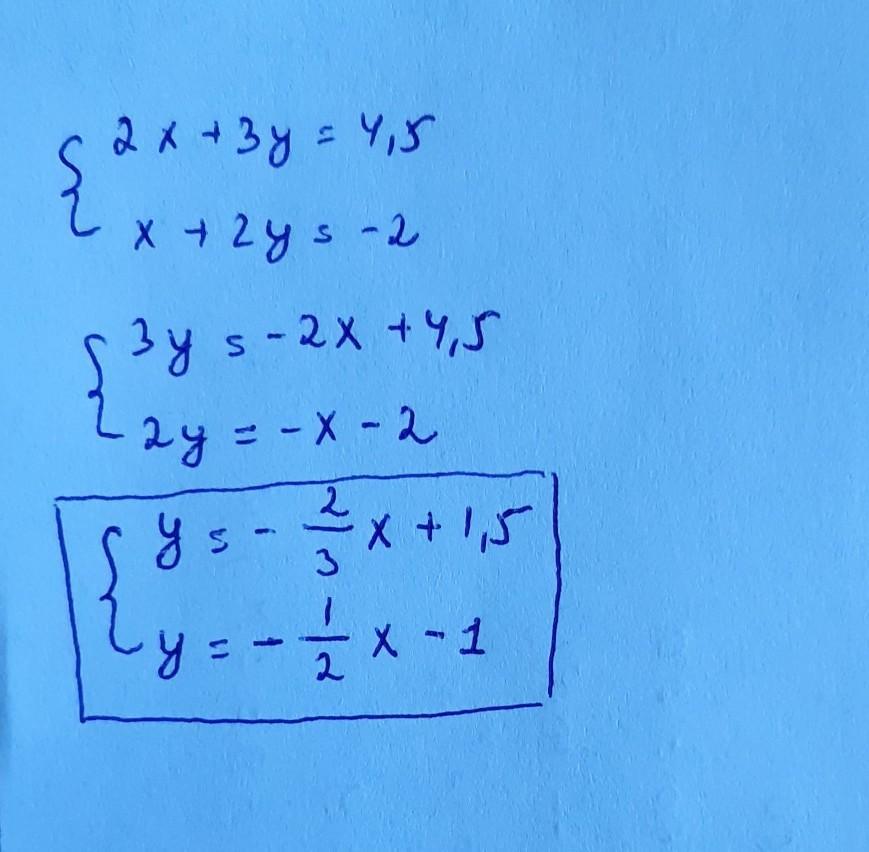 2x + 3y = 4,5
x + 2y = -2
3y = -2x + 4,5
2y = -x - 2
y = - 2/3 x + 1,5
y = - 1/2 x - 1